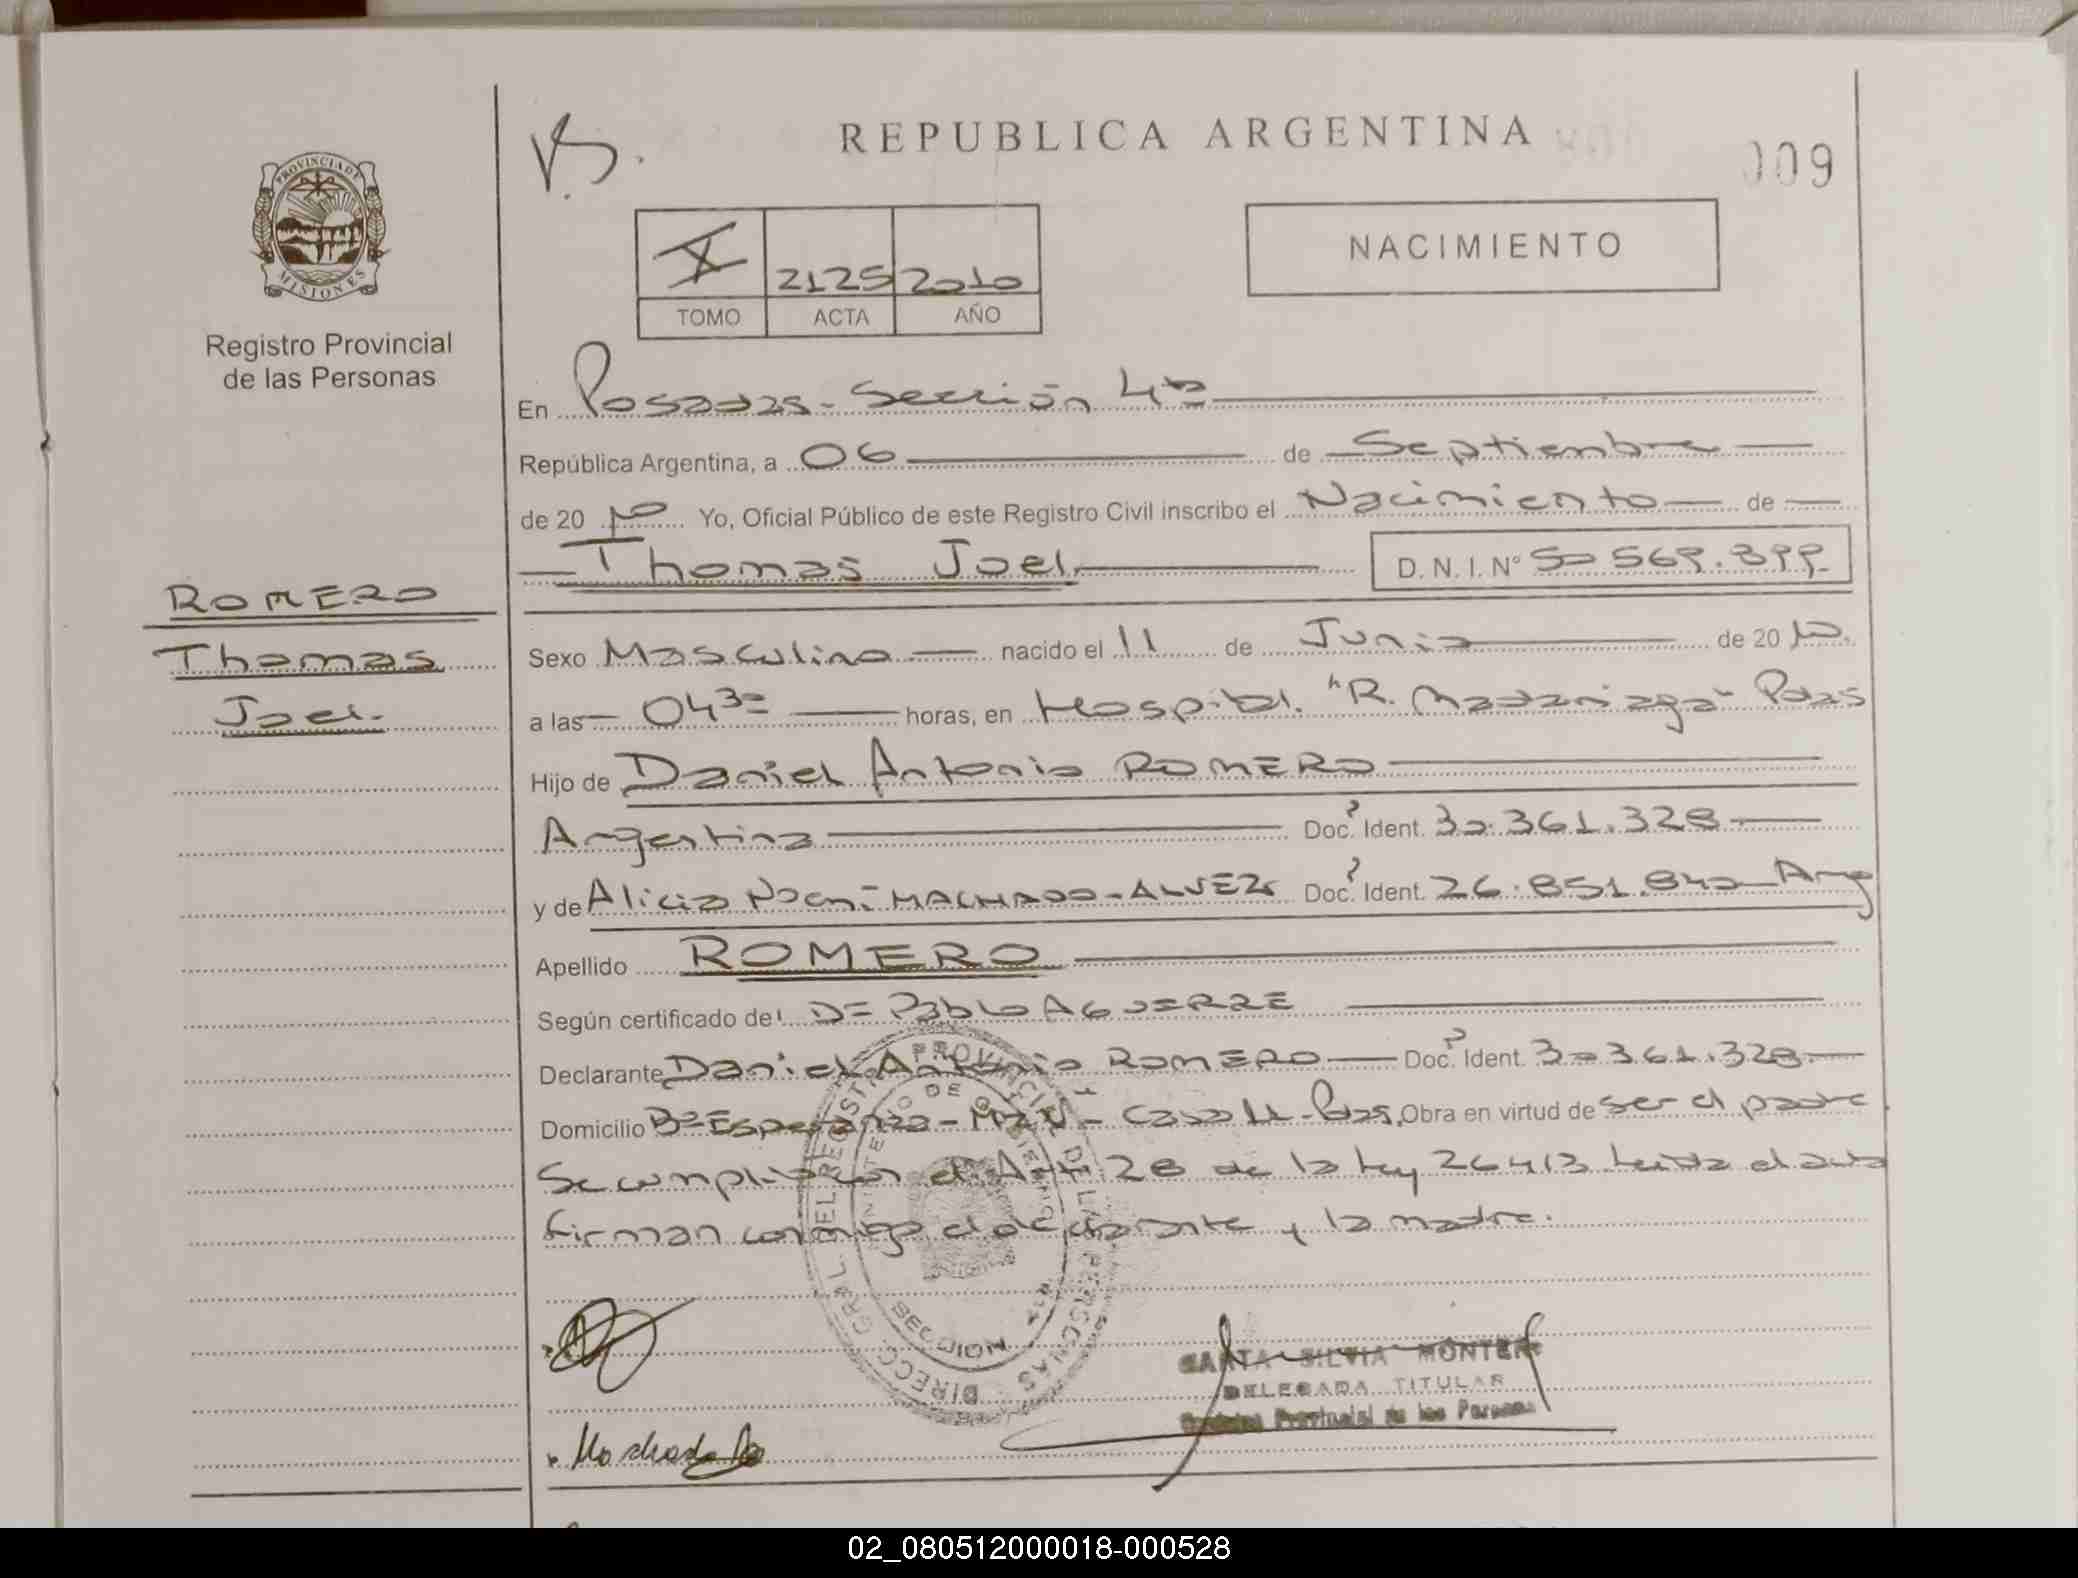 REPUBLICA ARGENTINA
009
PROVINCIA DE
MISIONES
Registro Provincial
de las Personas
X 2125 2010
TOMO ACTA AÑO
NACIMIENTO
En Posadas - Sección 4ta
República Argentina, a 06 de Septiembre
de 2010 Yo, Oficial Público de este Registro Civil inscribo el Nacimiento de
Thomas Joel D.N.I. Nº 50 569.899
ROMERO
Thomas
Joel.
Sexo Masculino nacido el 11 de Junio de 2010.
a las 04 30 horas, en Hospital. "R. Madariaga" Pdas
Hijo de Daniel Antonio ROMERO
Argentina Doc. Ident. 30.361.328
y de Alicia Noemí MACHADO - ALVEZ Doc. Ident. 26.851.840 Arg
Apellido ROMERO
Según certificado de: Pablo AGUERRE
Declarante Daniel Antonio ROMERO Doc. Ident. 30361.328
Domicilio Bº Esperanza - - Casa - Pdas. Obra en virtud de ser el padre
Se cumplió con el Art 28 de la ley 26413 Leída el acta
firman conmigo el declarante y la madre.
DIRECC. GRAL. DEL REGISTRO PROVINCIAL DE LAS PERSONAS
MINISTERIO DE GOBIERNO
MISIONES
SILVIA MONTER
DELEGADA TITULAR
Provincial de las Personas
Machado
02_080512000018-000528